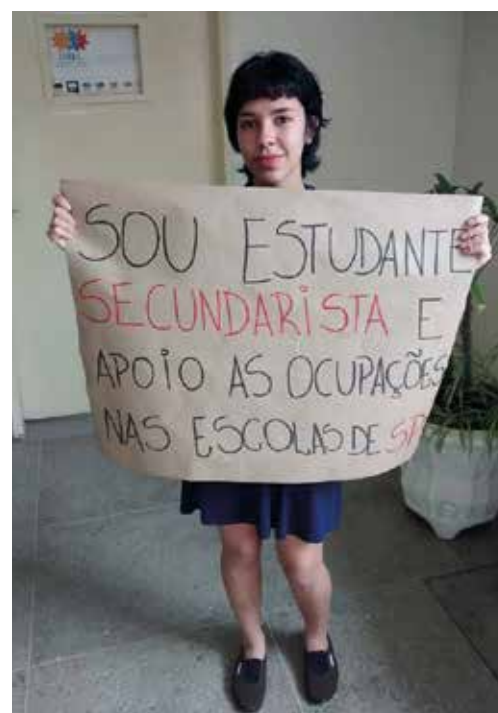 SOU ESTUDANTE
SECUNDARISTA E
APOIO AS OCUPAÇÕES
NAS ESCOLAS DE SP